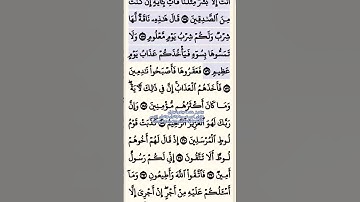 أَنتَ إِلَّا بَشَرٌ مِّثْلُنَا فَأْتِ بِـَٔايَةٍ إِن كُنتَ
مِنَ ٱلصَّـٰدِقِينَ ۝ قَالَ هَـٰذِهِۦ نَاقَةٌ لَّهَا
شِرْبٌ وَلَكُمْ شِرْبُ يَوْمٍ مَّعْلُومٍ ۝ وَلَا
تَمَسُّوهَا بِسُوٓءٍ فَيَأْخُذَكُمْ عَذَابُ يَوْمٍ
عَظِيمٍ ۝ فَعَقَرُوهَا فَأَصْبَحُوا۟ نَـٰدِمِينَ
۝ فَأَخَذَهُمُ ٱلْعَذَابُ ۗ إِنَّ فِى ذَٰلِكَ لَـَٔايَةً ۖ
وَمَا كَانَ أَكْثَرُهُم مُّؤْمِنِينَ ۝ وَإِنَّ
رَبَّكَ لَهُوَ ٱلْعَزِيزُ ٱلرَّحِيمُ ۝ كَذَّبَتْ قَوْمُ
لُوطٍ ٱلْمُرْسَلِينَ ۝ إِذْ قَالَ لَهُمْ أَخُوهُمْ
لُوطٌ أَلَا تَتَّقُونَ ۝ إِنِّى لَكُمْ رَسُولٌ
أَمِينٌ ۝ فَٱتَّقُوا۟ ٱللَّهَ وَأَطِيعُونِ ۝ وَمَآ
أَسْـَٔلُكُمْ عَلَيْهِ مِنْ أَجْرٍ ۖ إِنْ أَجْرِىَ إِلَّا